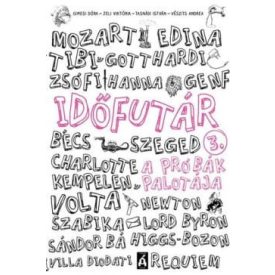 GIMESI DÓRA – JELI VIKTÓRIA – TASNÁDI ISTVÁN – VÉSZITS ANDREA
MOZART EDINA
TIBI GOTTHARDI
ZSÓFI HANNA GENF
IDŐFUTÁR
BÉCS SZEGED 3.
CHARLOTTE A PRÓBÁK
KEMPELEN PALOTÁJA
VOLTA NEWTON
SZABIKA LORD BYRON
SÁNDOR BÁ HIGGS-BOZON
VILLA DIODATI Á REQUIEM